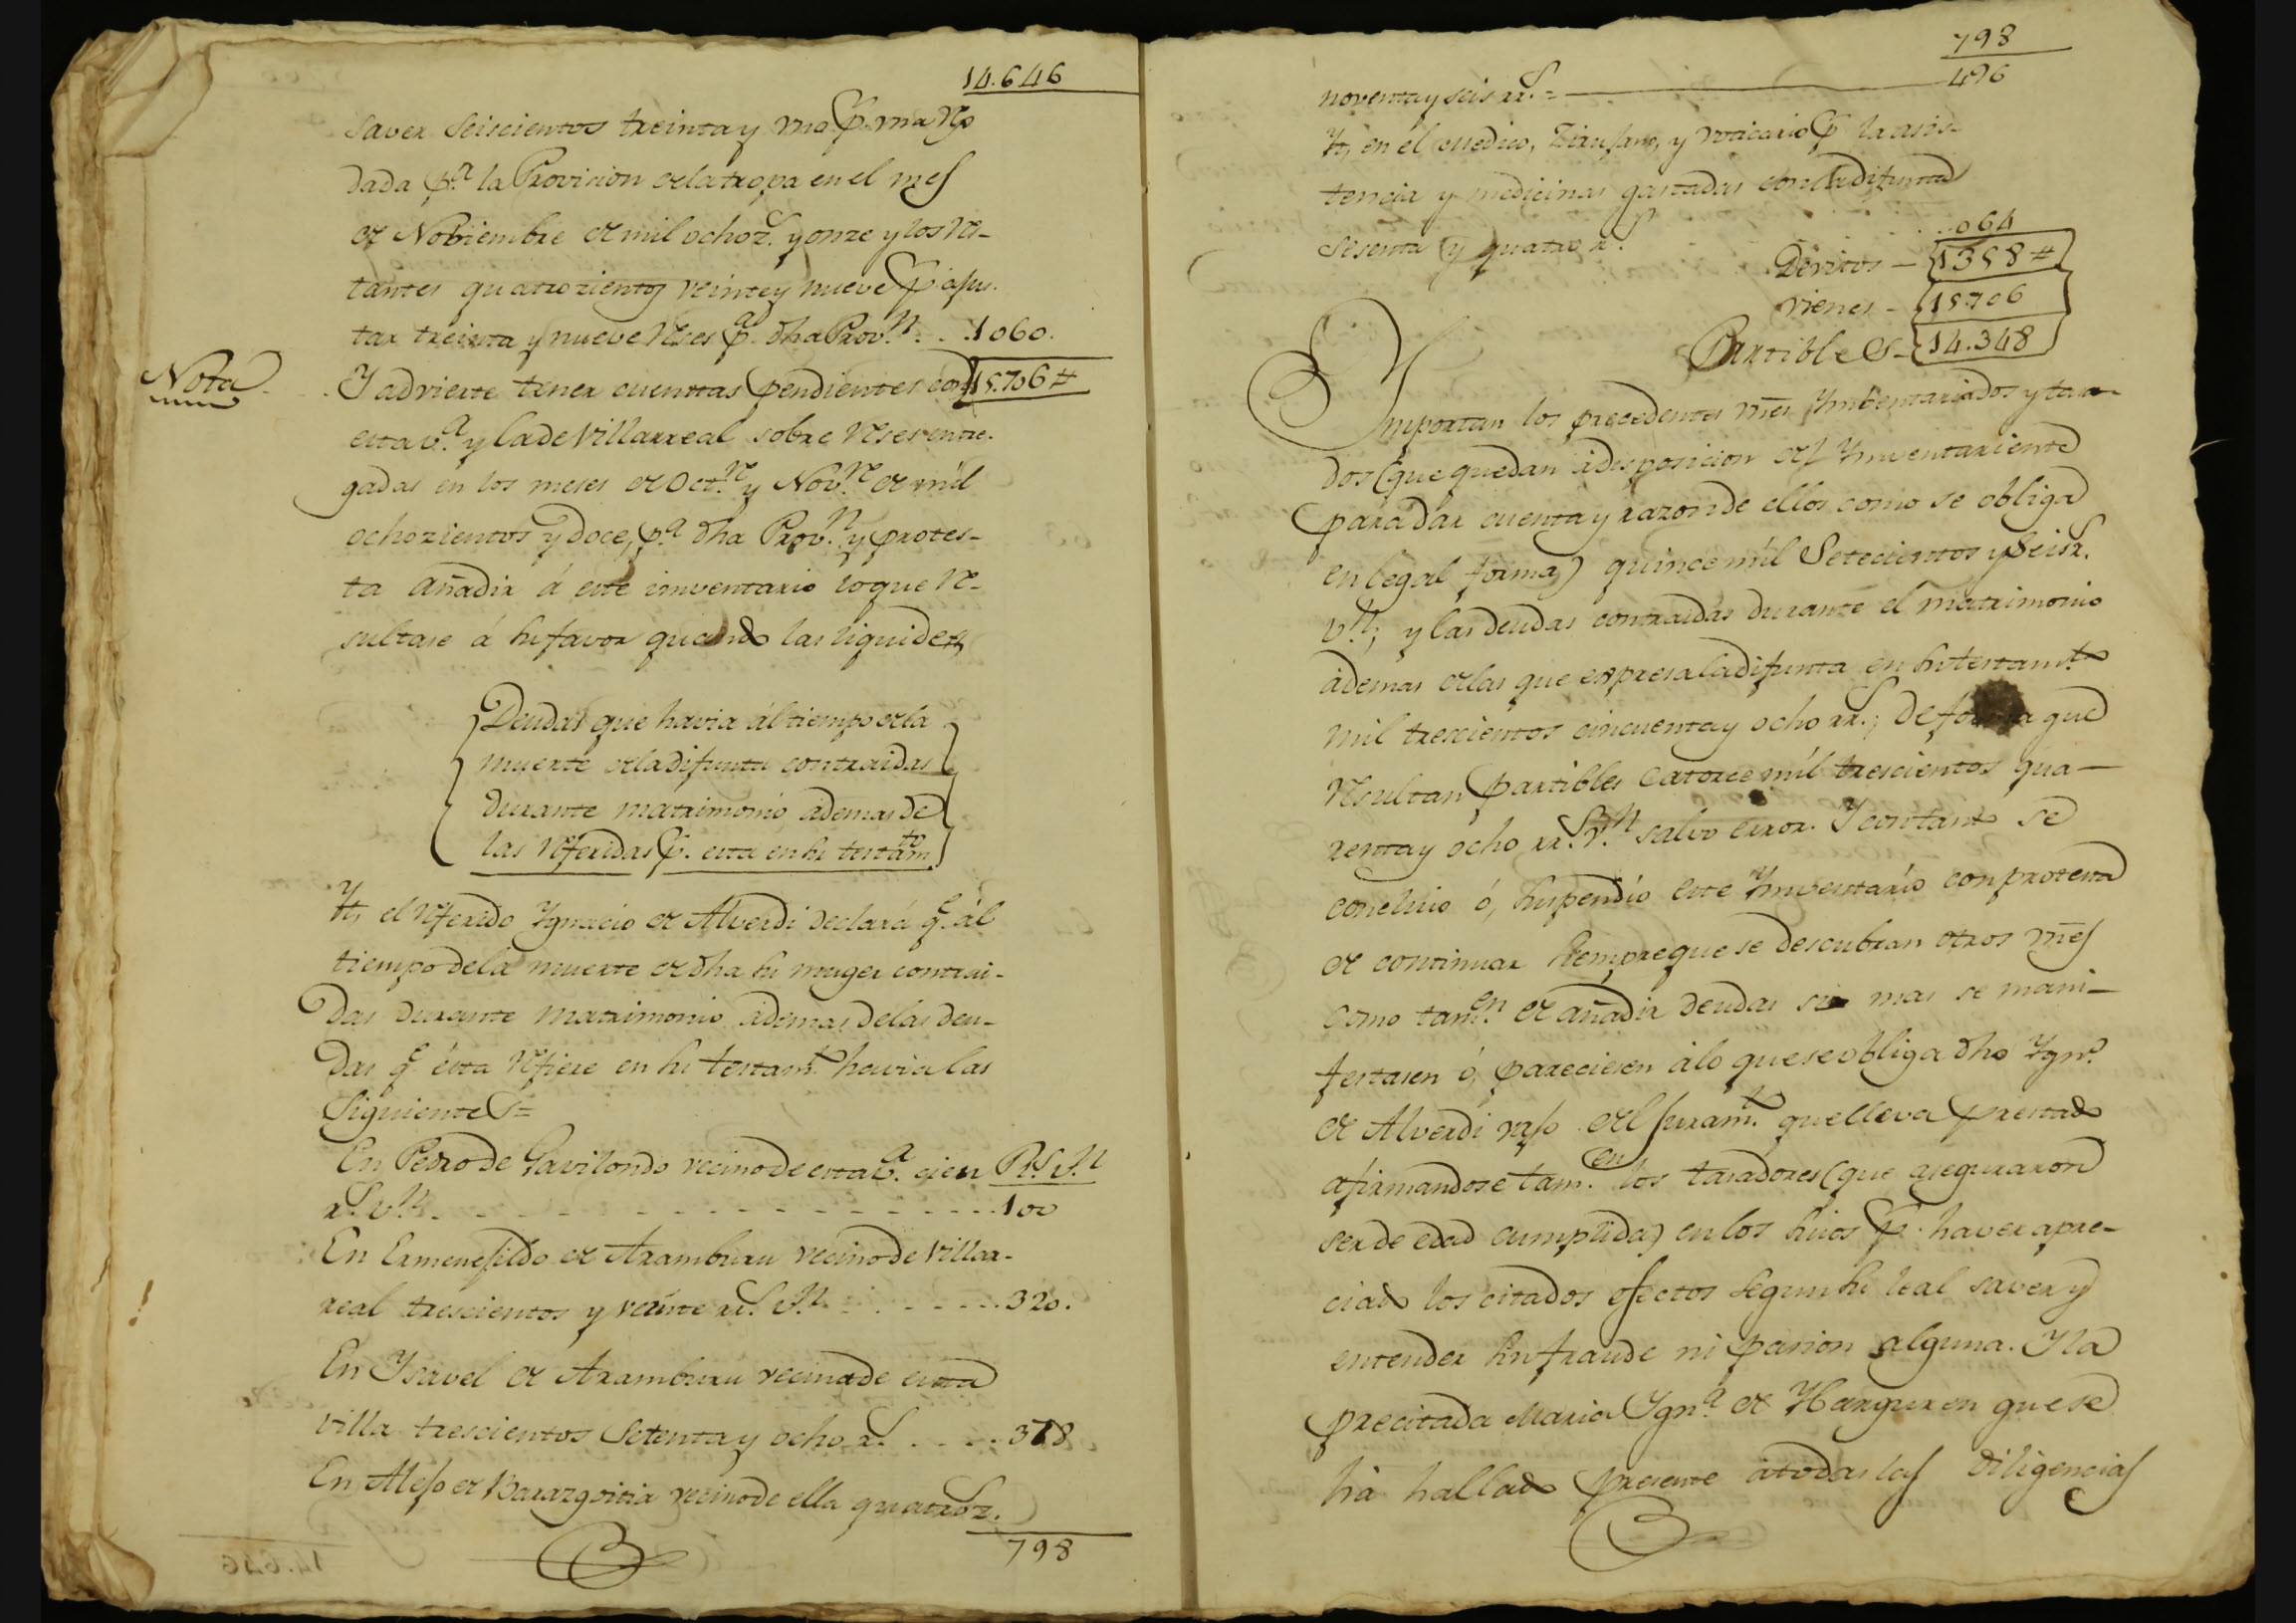 14.646
saver seiscientos treinta y uno p.r una Rs
dada p.a la Provicion de la tropa en el mes
de Nobiembre de mil ochoz.s y onze y los res-
tantes quatrozientos veinte y nueve p.r apu-
tar treinta y nueve Reses p.a dha Prov.n . . 1060.
Nota . . Y advierte tener cuenttas pendientes con 15.706 #
esta v.a y la de Villarreal sobre Reses entre-
gadas en los meses de Oct.re y Nov.re de mil
ochozientos y doce, p.a dha Prov.n y protes-
ta añadir á este imventario lo que re-
sultase á su favor quando las liquiden
Deudas que havia ál tiempo de la
muerte de la difunta contraidas
durante matrimonio ademas de
las referidas p.r esta en su testam.to
Yt, el referido Ygnacio de Alverdi declará q.e ál
tiempo de la muerte de dha su muger contrai-
das durante matrimonio ademas de las deu-
das q.e ésta refiere en su testam.to havia las
siguientes=
En Pedro de Gavilondo vecino de esta v.a cien R.s V.n
r.s v.n - - - - - - - - - - - - - - - 100
En Ermenesildo de Aramburu vecino de Villar-
real trescientos y veinte rr.s v.n - - - - - 320.
En Ysavel de Aramburu vecina de esta
villa trescientos setenta y ocho r.s . . . . 378
En Alejo de Barazgoitia vecino de ella quatroz.s
798
798
noventa y seis rr.s = 496
Yt, en el medico, Zirujano, y voticario p.r la asis-
tencia y medicinas gastadas con la difunta
sesenta y quatro r.s . . . 064
Devitos - 1358 #
vienes - 15.706
Partibles - 14.348
Ymportan los precedentes vnes Ymbentariados y tasa-
dos (que quedan á disposicion del Ymventariente
para dar cuenta y razon de ellos como se obliga
en legal forma) quince mil Setecientos y seis r.
v.n; y las deudas contraidas durante el matrimonio
ademas de las que expresa la difunta en su testam.to
mil trescientos cincuenta y ocho rr.s; de forma que
resultan partibles catorce mil trescientos qua-
renta y ocho rr.s v.n salvo error. Y contanto se
concluio ó, suspendio este Ymventario con protesta
de continuar siempre que se descubran otros vnes
como tam.en de añadir deudas si mas se mani-
festasen ó, pareciesen álo que se obliga dho Ygn.o
de Alverdi vajo del juram.to que lleva prestado
afirmandose tam.en los tasadores (que aseguraron
ser de edad cumplida) en los suios p.r haver apre-
ciado los citados efectos segun su leal saver y
entender sin fraude ni pasion alguna. Y la
precitada Maria Ygn.a de Yarguren que se
há hallado presente átodas las diligencias